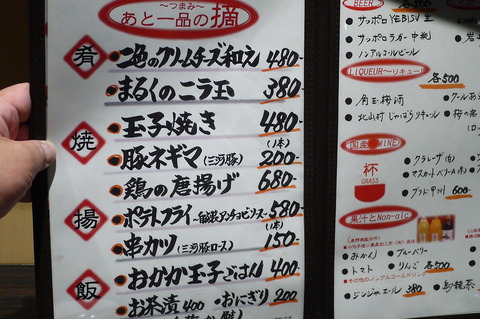 〜つまみ〜
あと一品の摘
肴
二色のクリームチーズ和え 480-
まるくのニラ玉 380-
焼
玉子焼き 480-
豚ネギマ(三河豚) (1本) 200-
鶏の唐揚げ 680-
揚
ポテトフライ 580-
串カツ(三河豚ロース) (1本) 150-
飯
おかか玉子ごはん 400
お茶漬 400 ・おにぎり 200
BEER 各500
・サッポロ YEBISU 生
・サッポロラガー 中瓶
・ノンアルコールビール
LIQUEUR〜リキュー 各500
・角玉梅酒
・北山村 じゃばらリキュール
国産 WINE
杯
GRASS
・グラド甲州 600
果汁とNon-alc
・みかん ・ブルーベリー
・トマト ・りんご 各500
■その他のノンアルコールドリンク
・ジンジャエール 380 ・烏龍茶